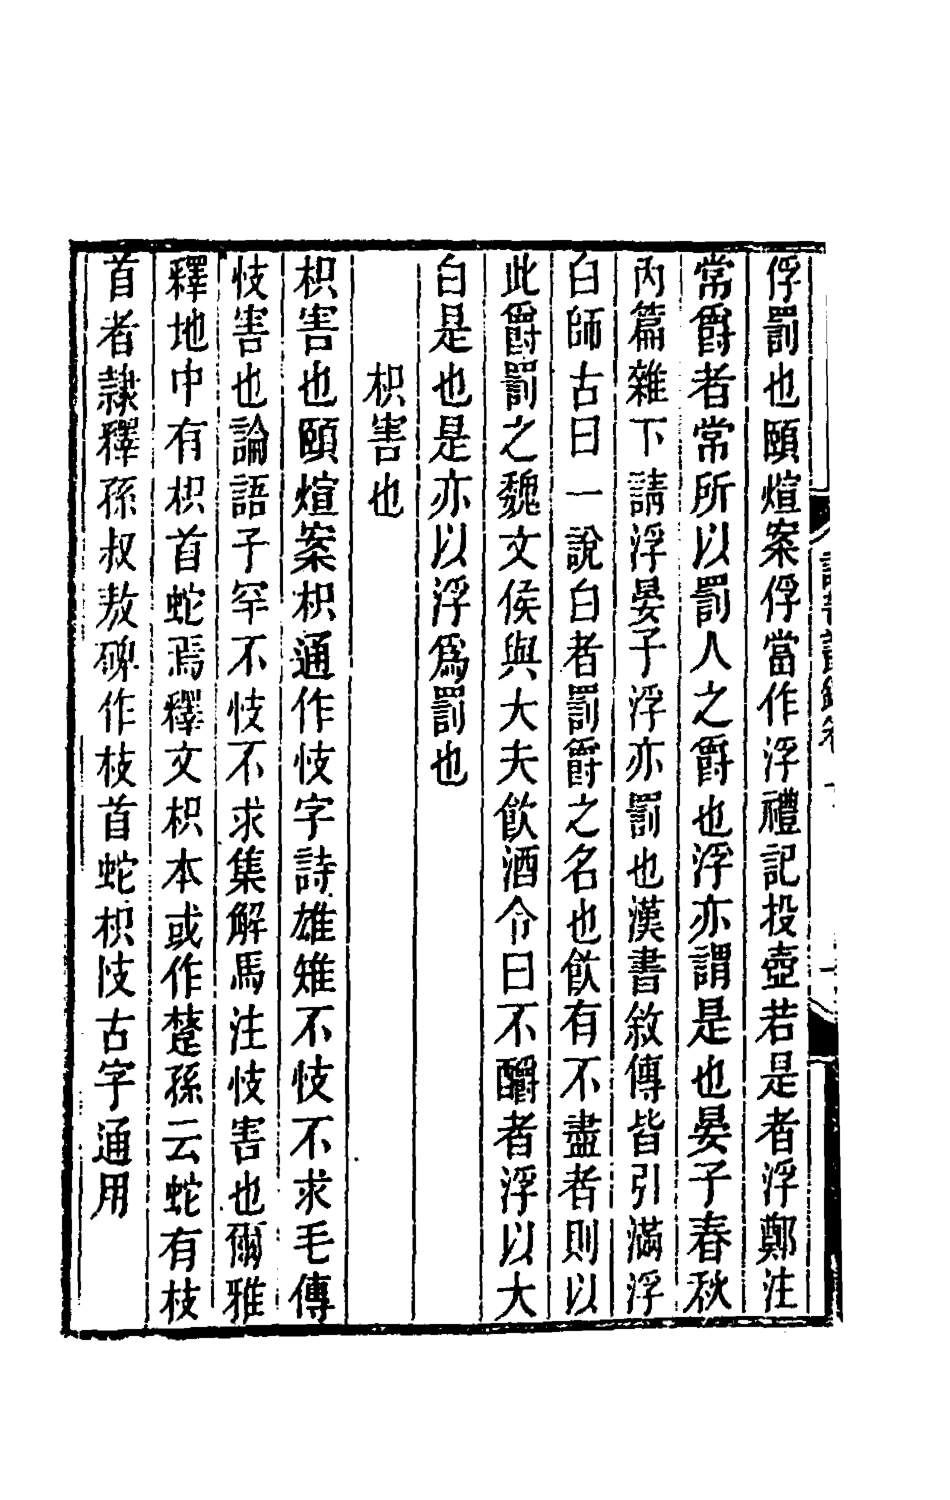 俘罰也頤煊案俘當作浮禮記投壺若是者浮鄭注
常爵者常所以罰人之爵也浮亦謂是也晏子春秋
內篇雜下請浮晏子浮亦罰也漢書敘傳皆引滿浮
白師古曰一說白者罰爵之名也飲有不盡者則以
此爵罰之魏文侯與大夫飲酒令曰不釂者浮以大
白是也是亦以浮爲罰也
枳害也
枳害也頤煊案枳通作忮字詩雄雉不忮不求毛傳
忮害也論語子罕不忮不求集解馬注忮害也爾雅
釋地中有枳首蛇焉釋文枳本或作𨙸孫云蛇有枝
首者隷釋孫叔敖碑作枝首蛇枳忮古字通用